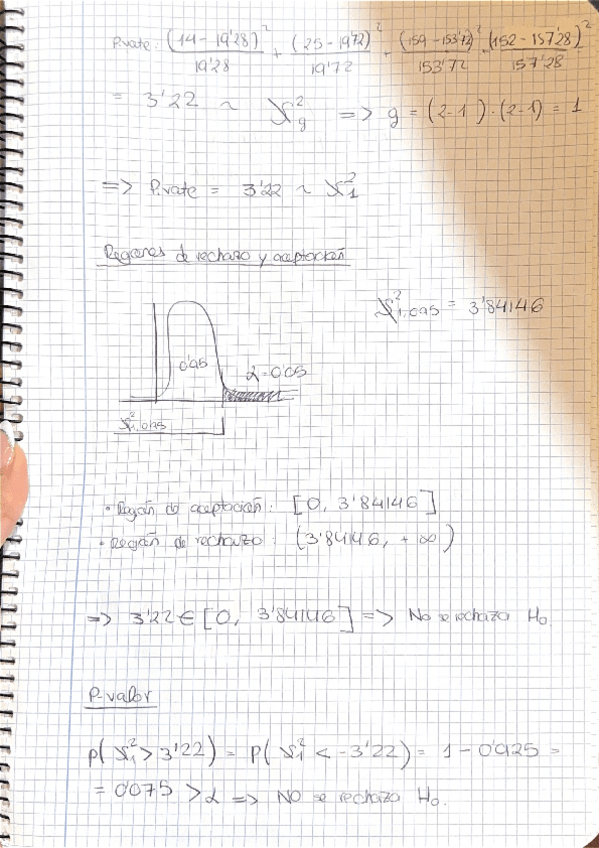 P.vate: (14 - 19'28)²/19'28 + (25 - 19'72)²/19'72 - (159 - 153'72)²/153'72 - (152 - 157'28)²/157'28
= 3'22 ~ χ²g => g = (2-1)·(2-1) = 1
=> P.vate = 3'22 ~ χ²1
Regiones de rechazo y aceptación
χ²1,0'95 = 3'84146
0'95
α = 0'05
χ²1,0'95
• Región de aceptación: [0, 3'84146]
• Región de rechazo: (3'84146, +∞)
=> 3'22 ∈ [0, 3'84146] => No se rechaza H0
P-valor
P(χ²1 > 3'22) = P(χ²1 < -3'22) = 1 - 0'925 =
= 0'075 > α => NO se rechaza H0.